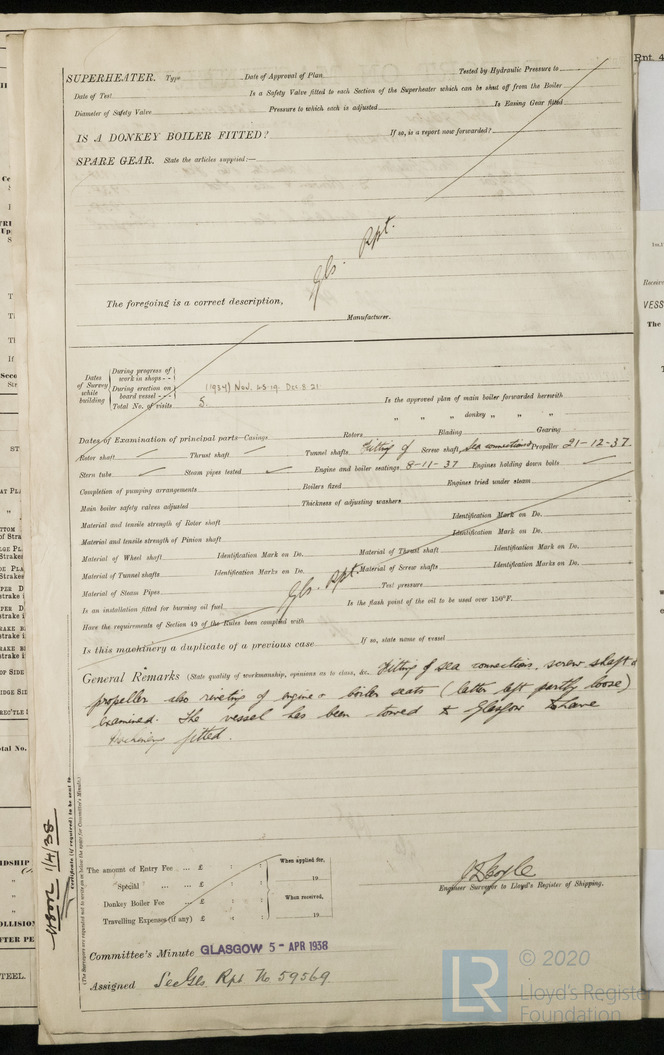 SUPERHEATER. Type Date of Approval of Plan Tested by Hydraulic Pressure to
Date of Test Is a Safety Valve fitted to each Section of the Superheater which can be shut off from the Boiler
Diameter of Safety Valve Pressure to which each is adjusted Is Easing Gear fitted
IS A DONKEY BOILER FITTED? If so, is a report now forwarded?
SPARE GEAR. State the articles supplied:—
Gls. Rpt.
The foregoing is a correct description,
Manufacturer.
Dates of Survey while building
During progress of work in shops - -
During erection on board vessel - - - (1937) Nov. Dec. 8. 21
Total No. of visits 5. Is the approved plan of main boiler forwarded herewith
" " " donkey " " "
Dates of Examination of principal parts—Casings Rotors Blading Gearing
Rotor shaft Thrust shaft Tunnel shafts Fitting of Screw shaft, Sea connections Propeller 21-12-37.
Stern tube Steam pipes tested Engine and boiler seatings 8-11-37 Engines holding down bolts
Completion of pumping arrangements Boilers fixed Engines tried under steam
Main boiler safety valves adjusted Thickness of adjusting washers
Material and tensile strength of Rotor shaft Identification Mark on Do.
Material and tensile strength of Pinion shaft Identification Mark on Do.
Material of Wheel shaft Identification Mark on Do. Material of Thrust shaft Identification Mark on Do.
Material of Tunnel shafts Identification Marks on Do. Material of Screw shafts Identification Marks on Do.
Material of Steam Pipes Gls. Rpt. Test pressure
Is an installation fitted for burning oil fuel Is the flash point of the oil to be used over 150°F.
Have the requirements of Section 49 of the Rules been complied with
Is this machinery a duplicate of a previous case If so, state name of vessel
General Remarks (State quality of workmanship, opinions as to class, &c. Fitting of sea connections, screw shaft &
propeller also riveting of engine & boiler seats (latter left partly loose)
examined. The vessel has been towed to Glasgow to have
machinery fitted.
The amount of Entry Fee ... £ : : When applied for,
Special ... ... £ : : 19
Donkey Boiler Fee ... £ : : When received,
Travelling Expenses (if any) £ : : 19
Engineer Surveyor to Lloyd's Register of Shipping.
Committee's Minute GLASGOW 5 - APR 1938
Assigned See Gls Rpt No 59569
1/4/38
© 2020
LR Lloyd's Register
Foundation